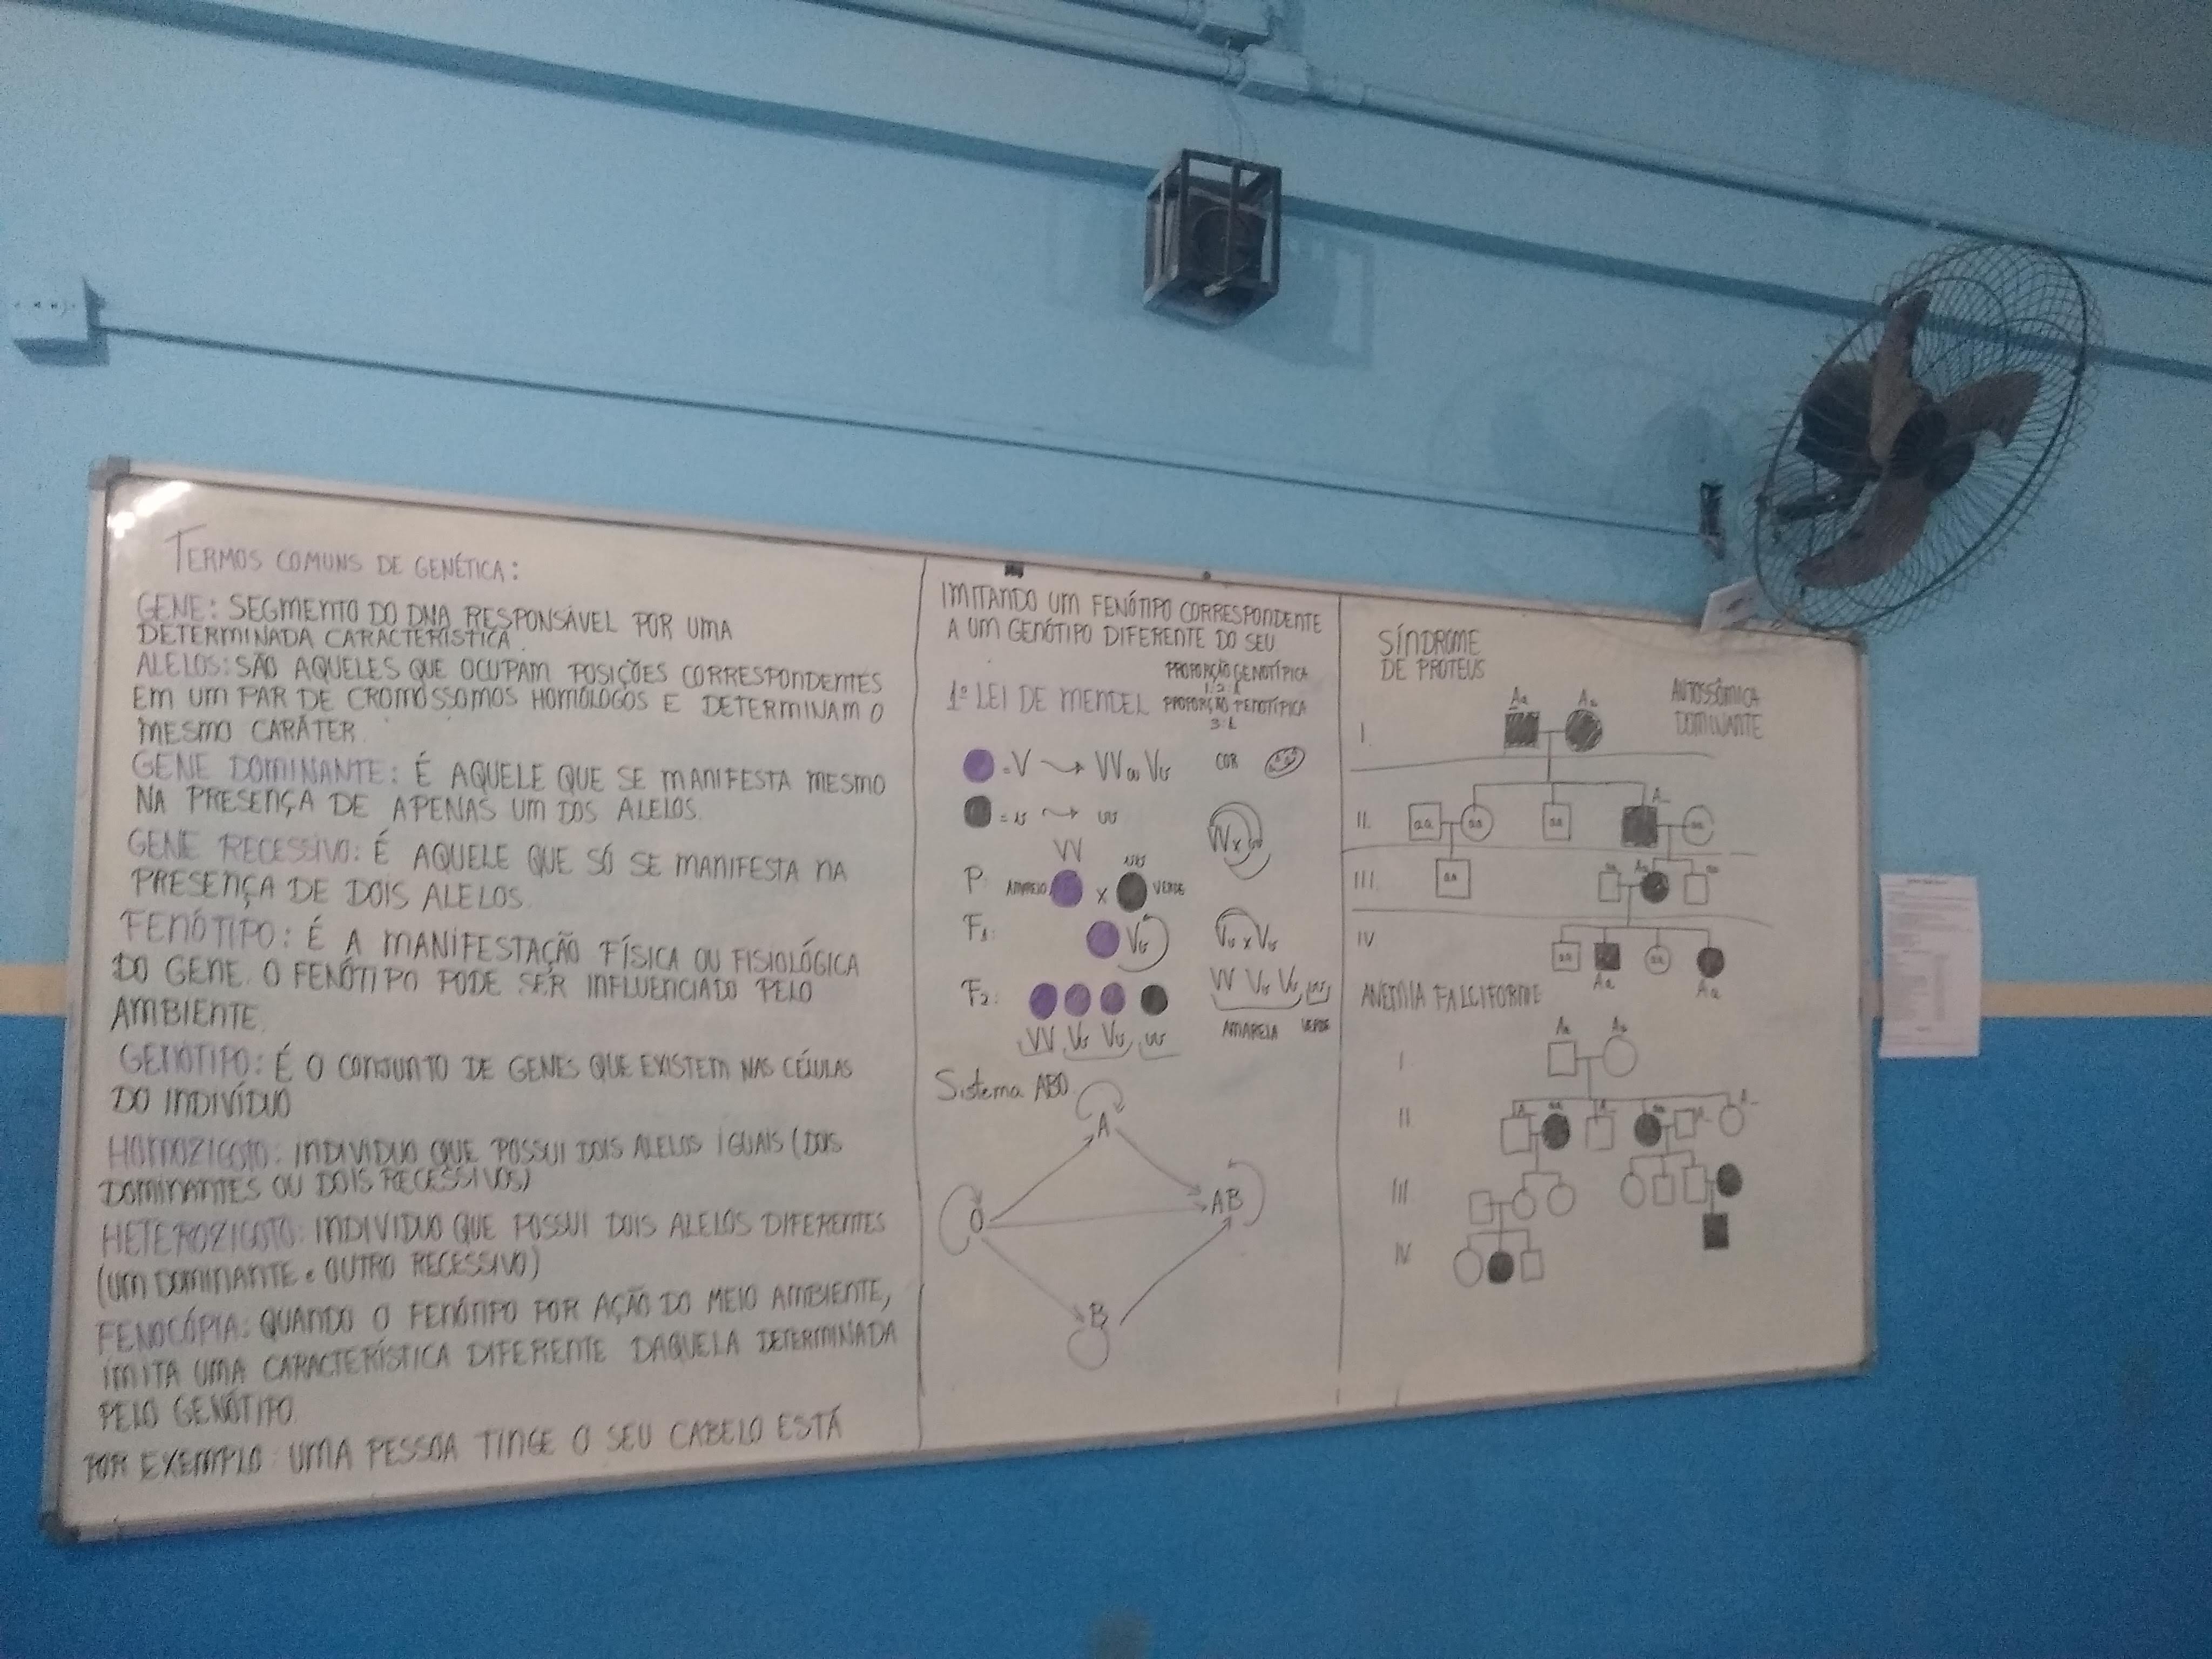 TERMOS COMUNS DE GENÉTICA:
GENE: SEGMENTO DO DNA RESPONSÁVEL POR UMA
DETERMINADA CARACTERÍSTICA.
ALELOS: SÃO AQUELES QUE OCUPAM POSIÇÕES CORRESPONDENTES
EM UM PAR DE CROMOSSOMOS HOMÓLOGOS E DETERMINAM O
MESMO CARÁTER.
GENE DOMINANTE: É AQUELE QUE SE MANIFESTA MESMO
NA PRESENÇA DE APENAS UM DOS ALELOS.
GENE RECESSIVO: É AQUELE QUE SÓ SE MANIFESTA NA
PRESENÇA DE DOIS ALELOS.
FENÓTIPO: É A MANIFESTAÇÃO FÍSICA OU FISIOLÓGICA
DO GENE. O FENÓTIPO PODE SER INFLUENCIADO PELO
AMBIENTE.
GENÓTIPO: É O CONJUNTO DE GENES QUE EXISTEM NAS CÉLULAS
DO INDIVÍDUO
HOMOZIGOTO: INDIVIDUO QUE POSSUI DOIS ALELOS IGUAIS (DOIS
DOMINANTES OU DOIS RECESSIVOS)
HETEROZIGOTO: INDIVIDUO QUE POSSUI DOIS ALELOS DIFERENTES
(UM DOMINANTE e OUTRO RECESSIVO)
FENOCÓPIA: QUANDO O FENÓTIPO POR AÇÃO DO MEIO AMBIENTE,
IMITA UMA CARACTERÍSTICA DIFERENTE DAQUELA DETERMINADA
PELO GENÓTIPO.
POR EXEMPLO: UMA PESSOA TINGE O SEU CABELO ESTÁ
IMITANDO UM FENÓTIPO CORRESPONDENTE
A UM GENÓTIPO DIFERENTE DO SEU
1º LEI DE MENDEL
PROPORÇÃO GENOTÍPICA
1:2:1
PROPORÇÃO FENOTÍPICA
3:1
= V → VV ou Vv
COR
= v → vv
VV x vv
VV vv
P: AMARELO x VERDE
F1: Vv
Vv x Vv
F2:
VV Vv Vv vv
VV Vv Vv vv
AMARELA VERDE
Sistema ABO
A
O
AB
B
SÍNDROME
DE PROTEUS
AUTOSSÔMICA
DOMINANTE
Aa Aa
I.
A_
II. aa aa aa aa
aa Aa aa
III. aa
IV aa aa
Aa Aa
ANEMIA FALCIFORME
Aa Aa
I
A_ aa A_ aa A_ A_
II
III
IV